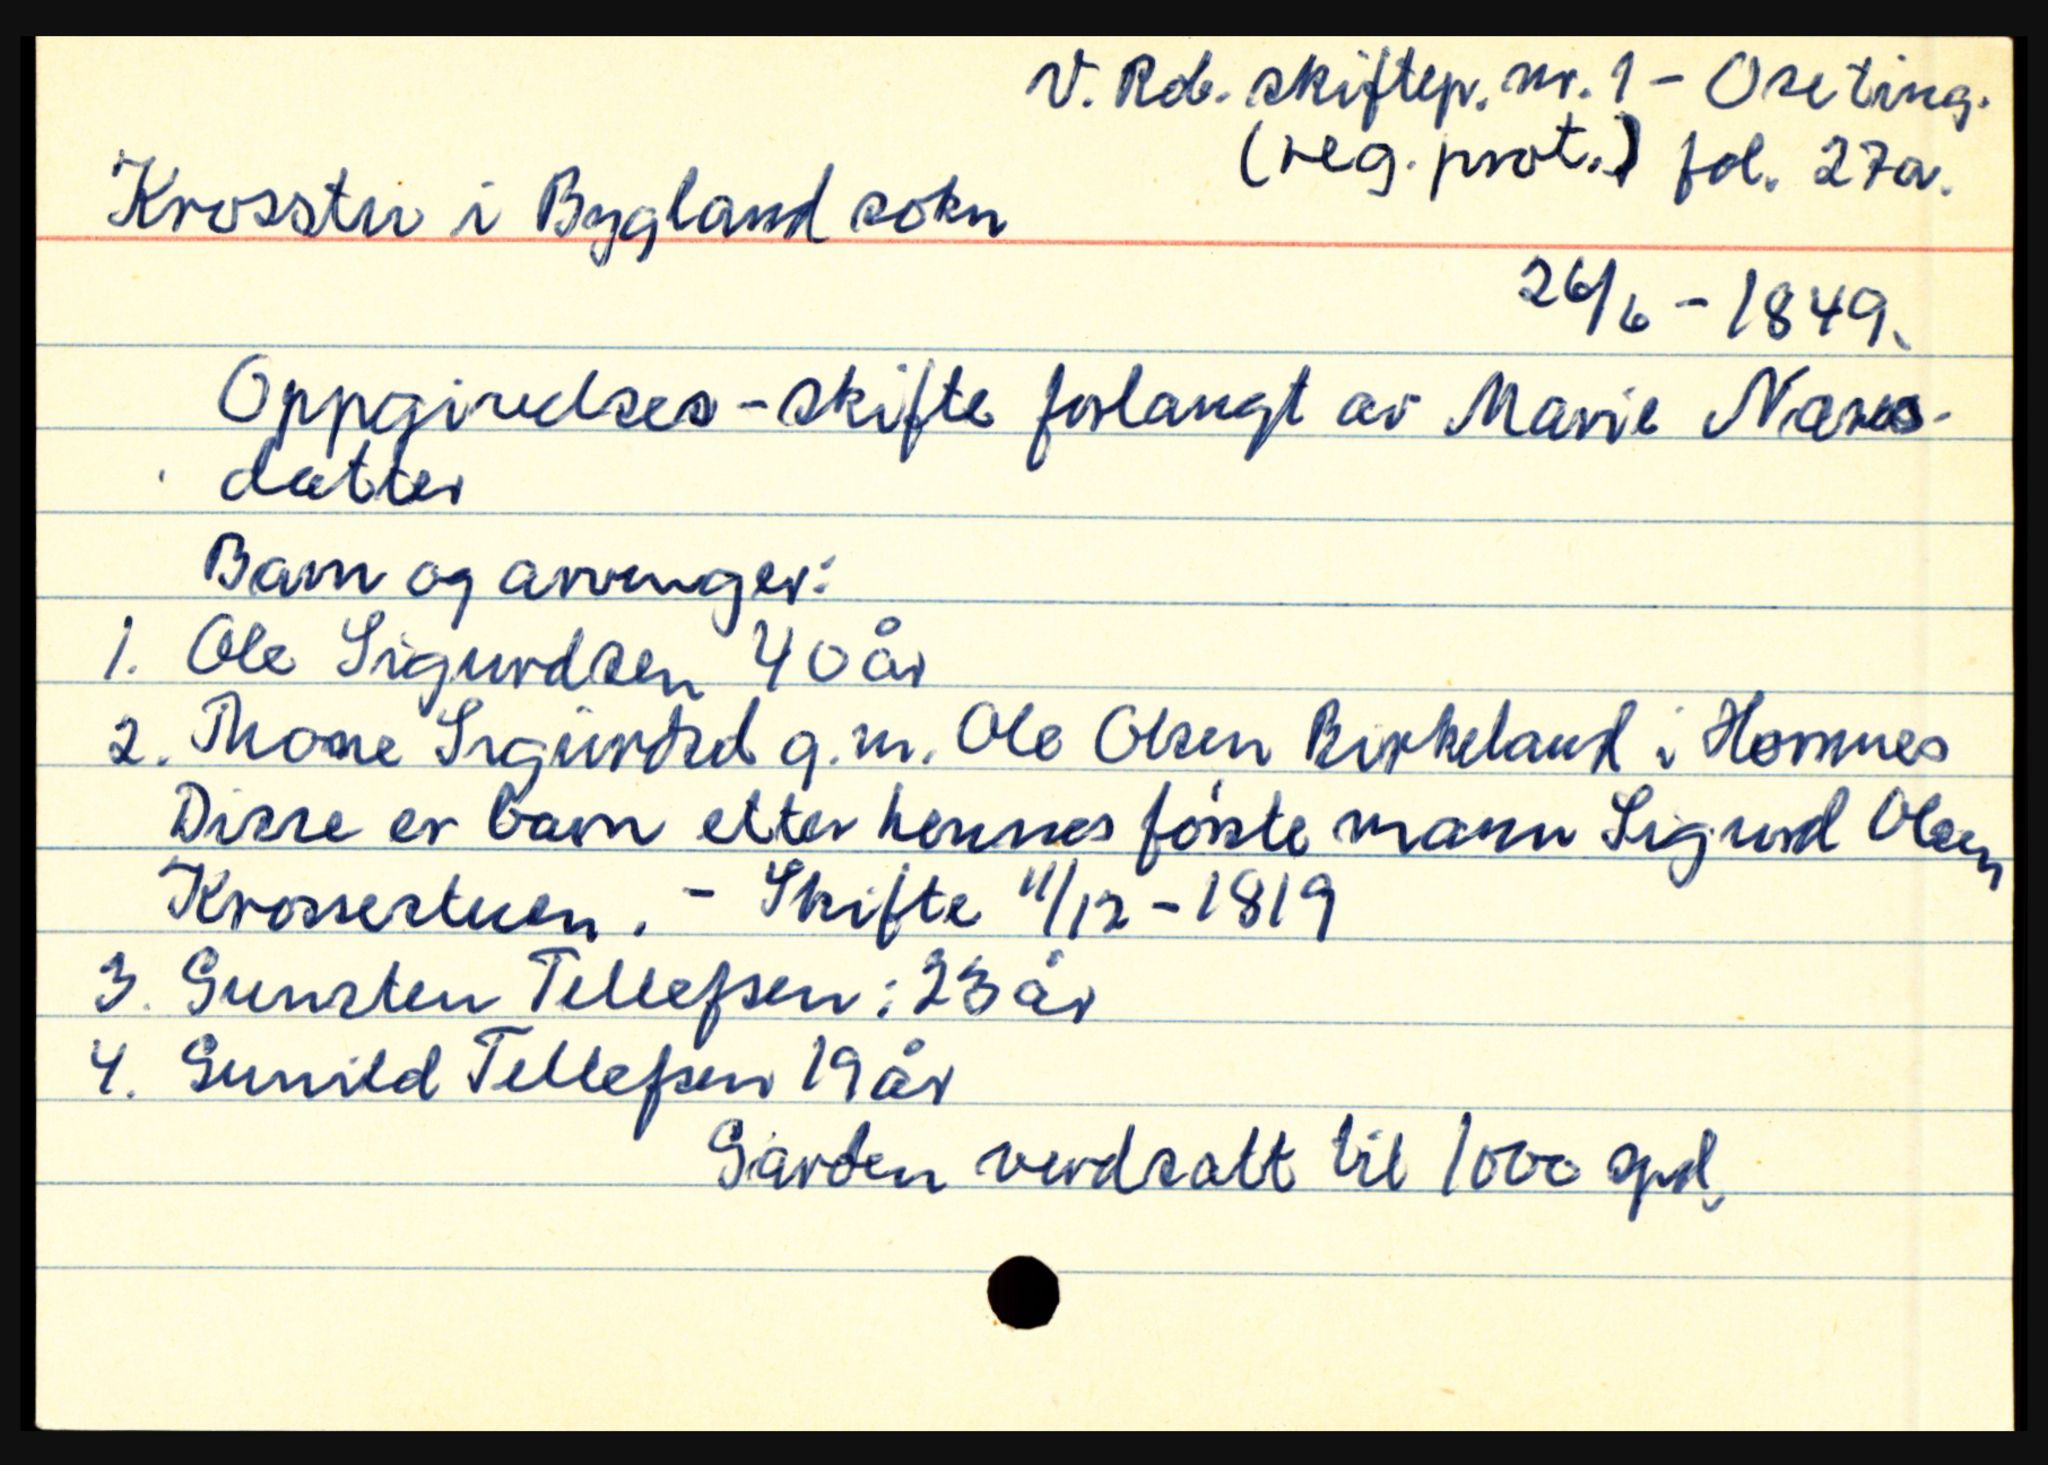 V. Rob. skiftepr. nr. 1 - Ose ting.
(reg. prot.) fol. 27a.
Krosstu i Bygland sokn
26/6 - 1849.
Oppgivelses - skifte forlangt av Marie Næres-
datter
Barn og arvinger:
1. Ole Sigurdsen 40 år
2. Thone Sigurdsd g.m. Ole Olsen Birkeland i Hornnes
Disse er barn etter hennes første mann Sigurd Olsen
Krossestuen. - Skifte 11/12 - 1819
3. Gunsten Tellefsen : 23 år
4. Gunild Tellefsen 19 år
Garden verdsatt til 1000 spd.